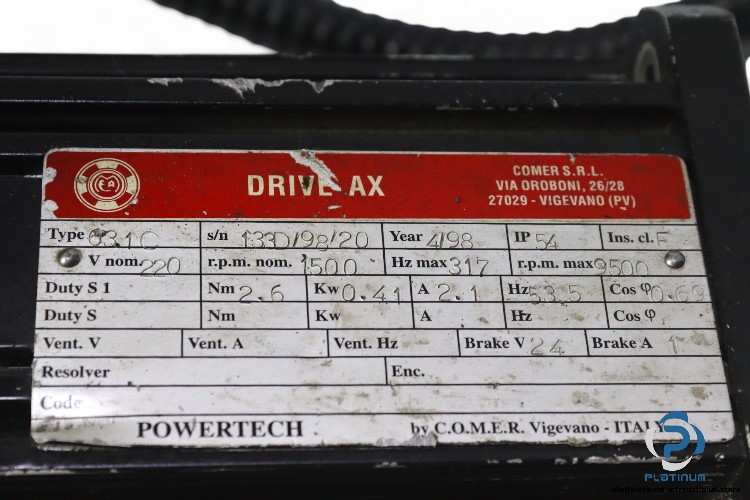 DRIVE AX
COMER S.R.L.
VIA OROBONI, 26/28
27029 - VIGEVANO (PV)
Type 631C s/n 133D/98/20 Year 4/98 IP 54 Ins. cl. F
V nom. 220 r.p.m. nom. 1500 Hz max 317 r.p.m. max 9500
Duty S 1 Nm 2.6 Kw 0.41 A 2.1 Hz 53.5 Cos φ 0.69
Duty S Nm Kw A Hz Cos φ
Vent. V Vent. A Vent. Hz Brake V 24 Brake A 1
Resolver Enc.
Code
POWERTECH by C.O.M.E.R. Vigevano - ITALY
PLATINUM